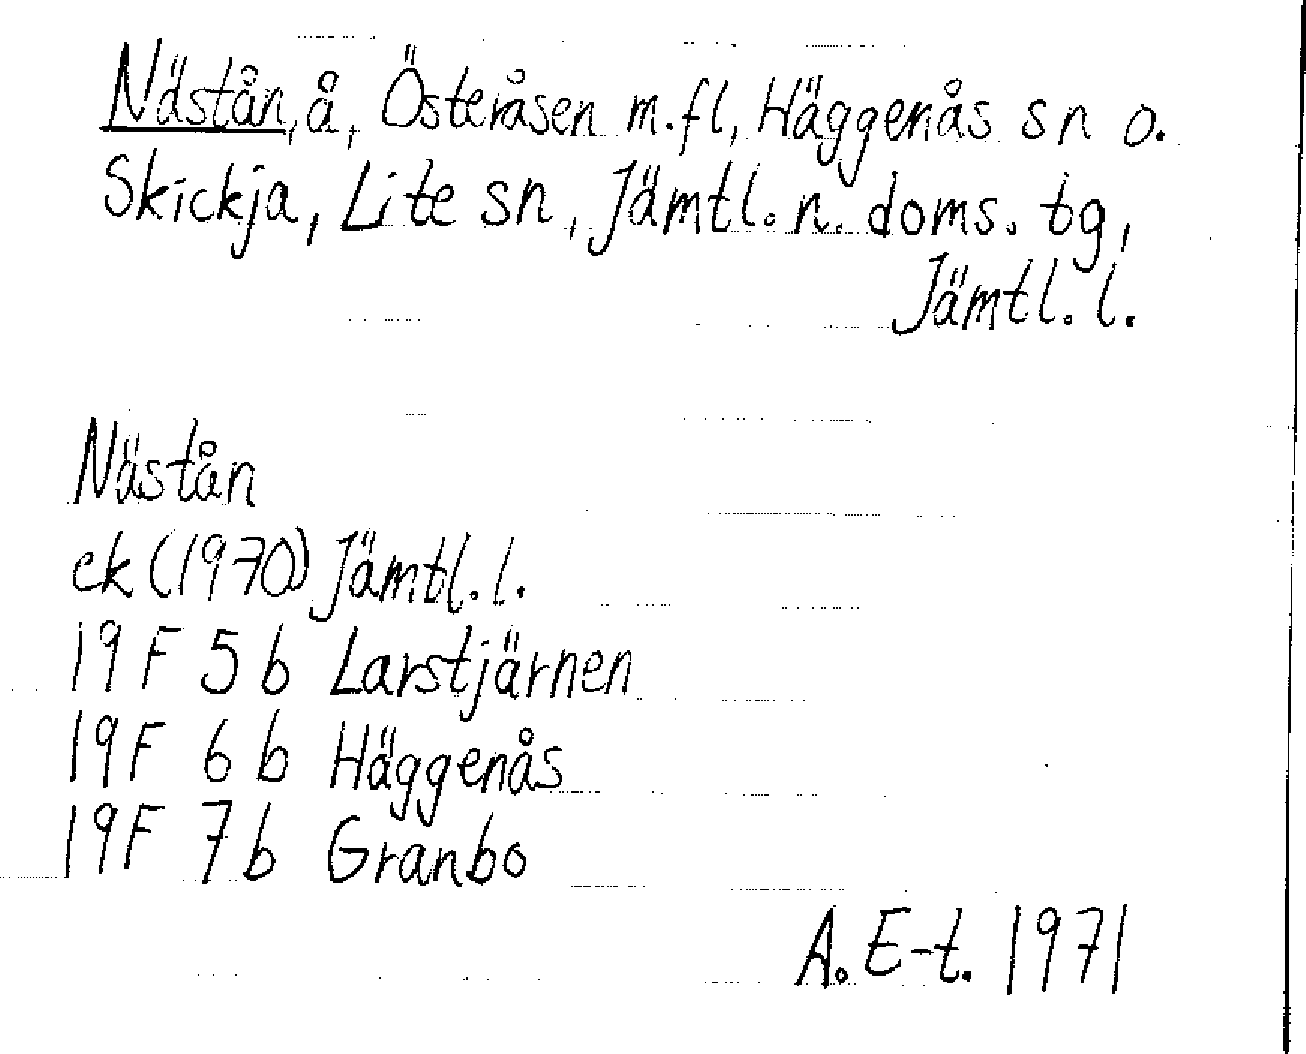 Nästån, å, Österåsen m.fl, Häggenås sn o.
Skickja, Lite sn, Jämtl. n. doms. tg,
Jämtl. l.
Nästån
ek (1970) Jämtl. l.
19 F 5 b Larstjärnen
19 F 6 b Häggenås
19 F 7 b Granbo
A. E-t. 1971